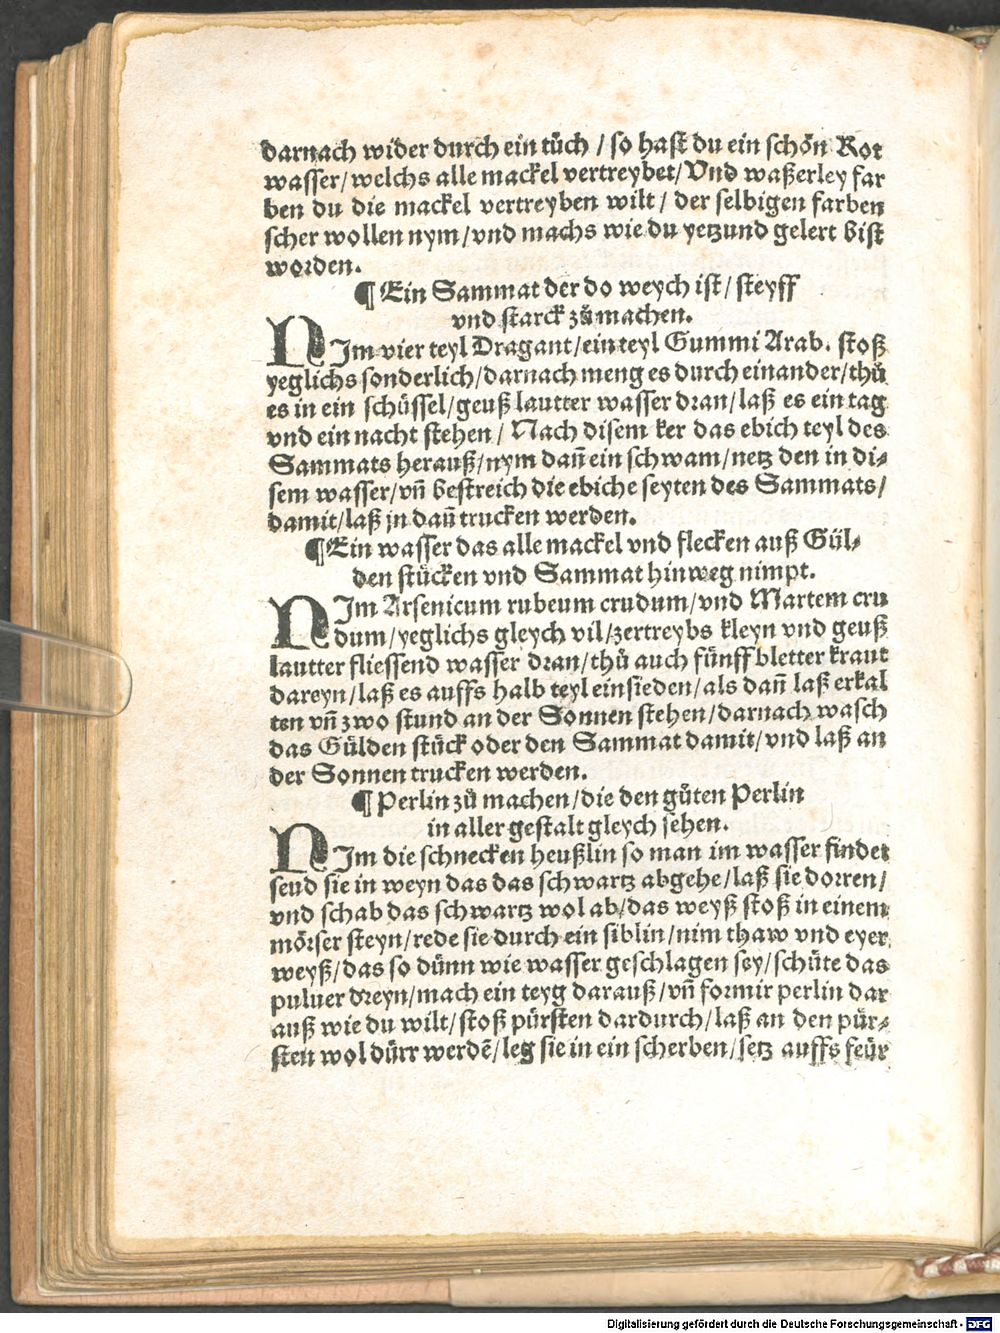 darnach wider durch ein tůch / so hast du ein schön Rot
wasser/welchs alle mackel vertreybet/Vnd waßerley far
ben du die mackel vertreyben wilt / der selbigen farben
scher wollen nym/vnd machs wie du yetzund gelert bist
worden.
¶ Ein Sammat der do weych ist/ steyff
vnd starck zů machen.
NIm vier teyl Dragant/ein teyl Gummi Arab. stoß
yeglichs sonderlich/darnach meng es durch einander/thů
es in ein schüssel/geuß lautter wasser dran/laß es ein tag
vnd ein nacht stehen / Nach disem ker das ebich teyl des
Sammats herauß/nym dañ ein schwam/netz den in di-
sem wasser/vñ bestreich die ebiche seyten des Sammats/
damit/laß jn dañ trucken werden.
¶Ein wasser das alle mackel vnd flecken auß Gül-
den stücken vnd Sammat hinweg nimpt.
NIm Arsenicum rubeum crudum/vnd Martem cru
dum/yeglichs gleych vil/zertreybs kleyn vnd geuß
lautter fliessend wasser dran/thů auch fünff bletter kraut
dareyn/laß es auffs halb teyl einsieden/als dañ laß erkal
ten vñ zwo stund an der Sonnen stehen/darnach wasch
das Gülden stück oder den Sammat damit/vnd laß an
der Sonnen trucken werden.
¶ Perlin zů machen/die den gůten Perlin
in aller gestalt gleych sehen.
NIm die schnecken heußlin so man im wasser findet
seud sie in weyn das das schwartz abgehe/laß sie dorren/
vnd schab das schwartz wol ab/das weyß stoß in einem
mörser steyn/rede sie durch ein siblin/nim thaw vnd eyer
weyß/das so dünn wie wasser geschlagen sey/schüte das
puluer dreyn/mach ein teyg darauß/vñ formir perlin dar
auß wie du wilt/stoß pürsten dardurch/laß an den pür-
sten wol dürr werdẽ/leg sie in ein scherben/setz auffs feür
Digitalisierung gefördert durch die Deutsche Forschungsgemeinschaft - DFG